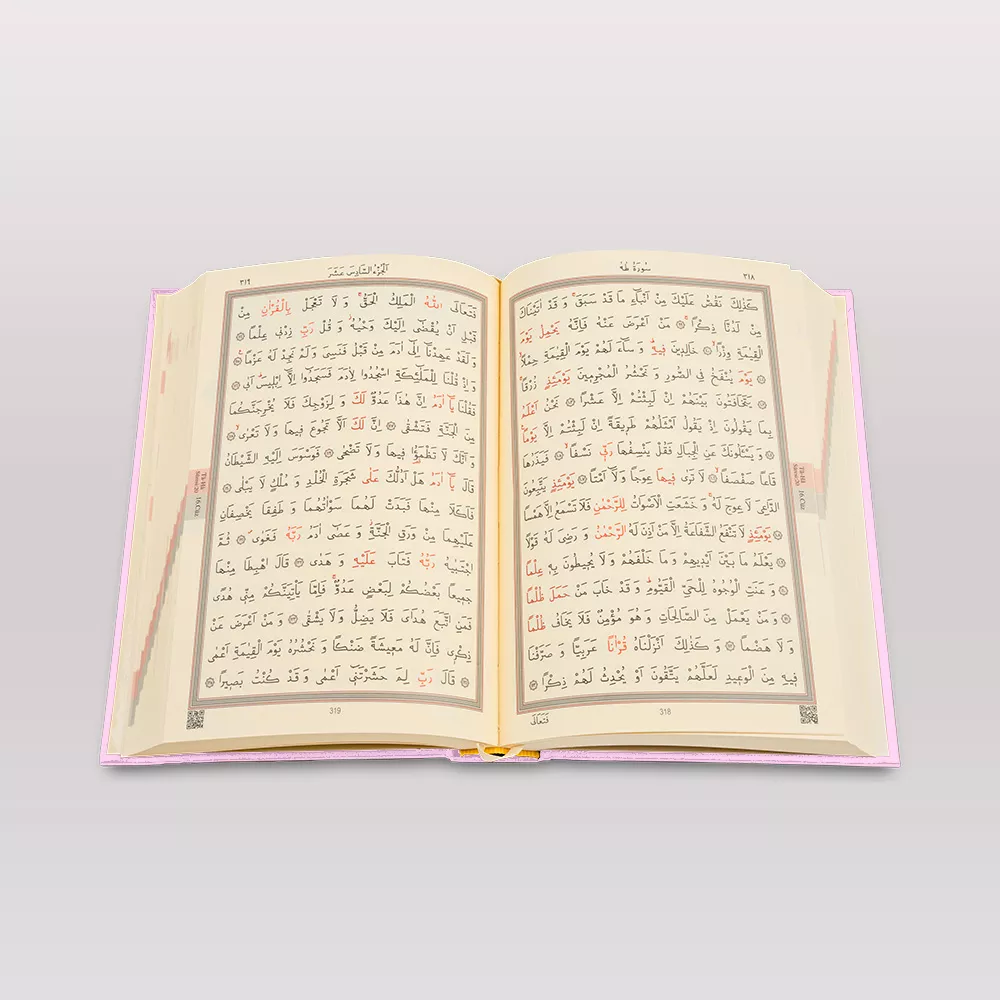 سُورَةُ طٰهٰ
٣١٨
كَذٰلِكَ نَقُصُّ عَلَيْكَ مِنْ اَنْبَٓاءِ مَا قَدْ سَبَقَۚ وَ قَدْ اٰتَيْنَاكَ
مِنْ لَدُنَّا ذِكْرًاۚ ۝ مَنْ اَعْرَضَ عَنْهُ فَاِنَّهُ يَحْمِلُ يَوْمَ
الْقِيٰمَةِ وِزْرًاۙ ۝ خَالِدِينَ فِيهِۜ وَ سَٓاءَ لَهُمْ يَوْمَ الْقِيٰمَةِ حِمْلًاۙ
۝ يَوْمَ يُنْفَخُ فِي الصُّورِ وَ نَحْشُرُ الْمُجْرِمِينَ يَوْمَئِذٍ زُرْقًاۚ
۝ يَتَخَافَتُونَ بَيْنَهُمْ اِنْ لَبِثْتُمْ اِلَّا عَشْرًا ۝ نَحْنُ اَعْلَمُ
بِمَا يَقُولُونَ اِذْ يَقُولُ اَمْثَلُهُمْ طَرِيقَةً اِنْ لَبِثْتُمْ اِلَّا يَوْمًا۟
۝ وَ يَسْـَٔلُونَكَ عَنِ الْجِبَالِ فَقُلْ يَنْسِفُهَا رَبّ۪ي نَسْفًاۙ ۝ فَيَذَرُهَا
قَاعًا صَفْصَفًاۙ ۝ لَا تَرٰى فِيهَا عِوَجًا وَلَٓا اَمْتًاۜ ۝ يَوْمَئِذٍ يَتَّبِعُونَ
الدَّاعِيَ لَا عِوَجَ لَهُۚ وَ خَشَعَتِ الْاَصْوَاتُ لِلرَّحْمٰنِ فَلَا تَسْمَعُ اِلَّا هَمْسًا
۝ يَوْمَئِذٍ لَا تَنْفَعُ الشَّفَاعَةُ اِلَّا مَنْ اَذِنَ لَهُ الرَّحْمٰنُ وَ رَضِيَ لَهُ قَوْلًا
۝ يَعْلَمُ مَا بَيْنَ اَيْدِيهِمْ وَ مَا خَلْفَهُمْ وَ لَا يُحِيطُونَ بِهِ عِلْمًا
۝ وَ عَنَتِ الْوُجُوهُ لِلْحَيِّ الْقَيُّومِۜ وَ قَدْ خَابَ مَنْ حَمَلَ ظُلْمًا
۝ وَ مَنْ يَعْمَلْ مِنَ الصَّالِحَاتِ وَ هُوَ مُؤْمِنٌ فَلَا يَخَافُ ظُلْمًا
وَ لَا هَضْمًا ۝ وَ كَذٰلِكَ اَنْزَلْنَاهُ قُرْاٰنًا عَرَبِيًّا وَ صَرَّفْنَا
فِيهِ مِنَ الْوَعِيدِ لَعَلَّهُمْ يَتَّقُونَ اَوْ يُحْدِثُ لَهُمْ ذِكْرًا ۝
318
فَتَعَالَى
Tâ-Hâ
Sûresi 20
16.Cüz
اَلْجُزْءُ السَّادِسَ عَشَرَ
٣١٩
فَتَعَالَى اللّٰهُ الْمَلِكُ الْحَقُّۚ وَ لَا تَعْجَلْ بِالْقُرْاٰنِ مِنْ
قَبْلِ اَنْ يُقْضٰٓى اِلَيْكَ وَحْيُهُۘ وَ قُلْ رَبِّ زِدْنِي عِلْمًا ۝
وَ لَقَدْ عَهِدْنَٓا اِلٰٓى اٰدَمَ مِنْ قَبْلُ فَنَسِيَ وَلَمْ نَجِدْ لَهُ عَزْمًا۟ ۝
وَ اِذْ قُلْنَا لِلْمَلٰٓئِكَةِ اسْجُدُوا لِاٰدَمَ فَسَجَدُٓوا اِلَّٓا اِبْلِيسَۜ اَبٰى ۝
فَقُلْنَا يَٓا اٰدَمُ اِنَّ هٰذَا عَدُوٌّ لَكَ وَ لِزَوْجِكَ فَلَا يُخْرِجَنَّكُمَا
مِنَ الْجَنَّةِ فَتَشْقٰى ۝ اِنَّ لَكَ اَلَّا تَجُوعَ فِيهَا وَ لَا تَعْرٰىۙ ۝
وَ اَنَّكَ لَا تَظْمَؤُ۬ا فِيهَا وَ لَا تَضْحٰى ۝ فَوَسْوَسَ اِلَيْهِ الشَّيْطَانُ
قَالَ يَٓا اٰدَمُ هَلْ اَدُلُّكَ عَلٰى شَجَرَةِ الْخُلْدِ وَ مُلْكٍ لَا يَبْلٰى ۝
فَاَكَلَا مِنْهَا فَبَدَتْ لَهُمَا سَوْاٰتُهُمَا وَ طَفِقَا يَخْصِفَانِ
عَلَيْهِمَا مِنْ وَرَقِ الْجَنَّةِۘ وَ عَصٰٓى اٰدَمُ رَبَّهُ فَغَوٰىۖ ۝ ثُمَّ
اجْتَبٰيهُ رَبُّهُ فَتَابَ عَلَيْهِ وَ هَدٰى ۝ قَالَ اهْبِطَا مِنْهَا
جَمِيعًا بَعْضُكُمْ لِبَعْضٍ عَدُوٌّۚ فَاِمَّا يَأْتِيَنَّكُمْ مِنّ۪ي هُدًى
فَمَنِ اتَّبَعَ هُدَايَ فَلَا يَضِلُّ وَلَا يَشْقٰى ۝ وَ مَنْ اَعْرَضَ عَنْ
ذِكْر۪ي فَاِنَّ لَهُ مَعِيشَةً ضَنْكًا وَ نَحْشُرُهُ يَوْمَ الْقِيٰمَةِ اَعْمٰى
۝ قَالَ رَبِّ لِمَ حَشَرْتَن۪ٓي اَعْمٰى وَ قَدْ كُنْتُ بَصِيرًا ۝
319
Tâ-Hâ
Sûresi 20
16.Cüz